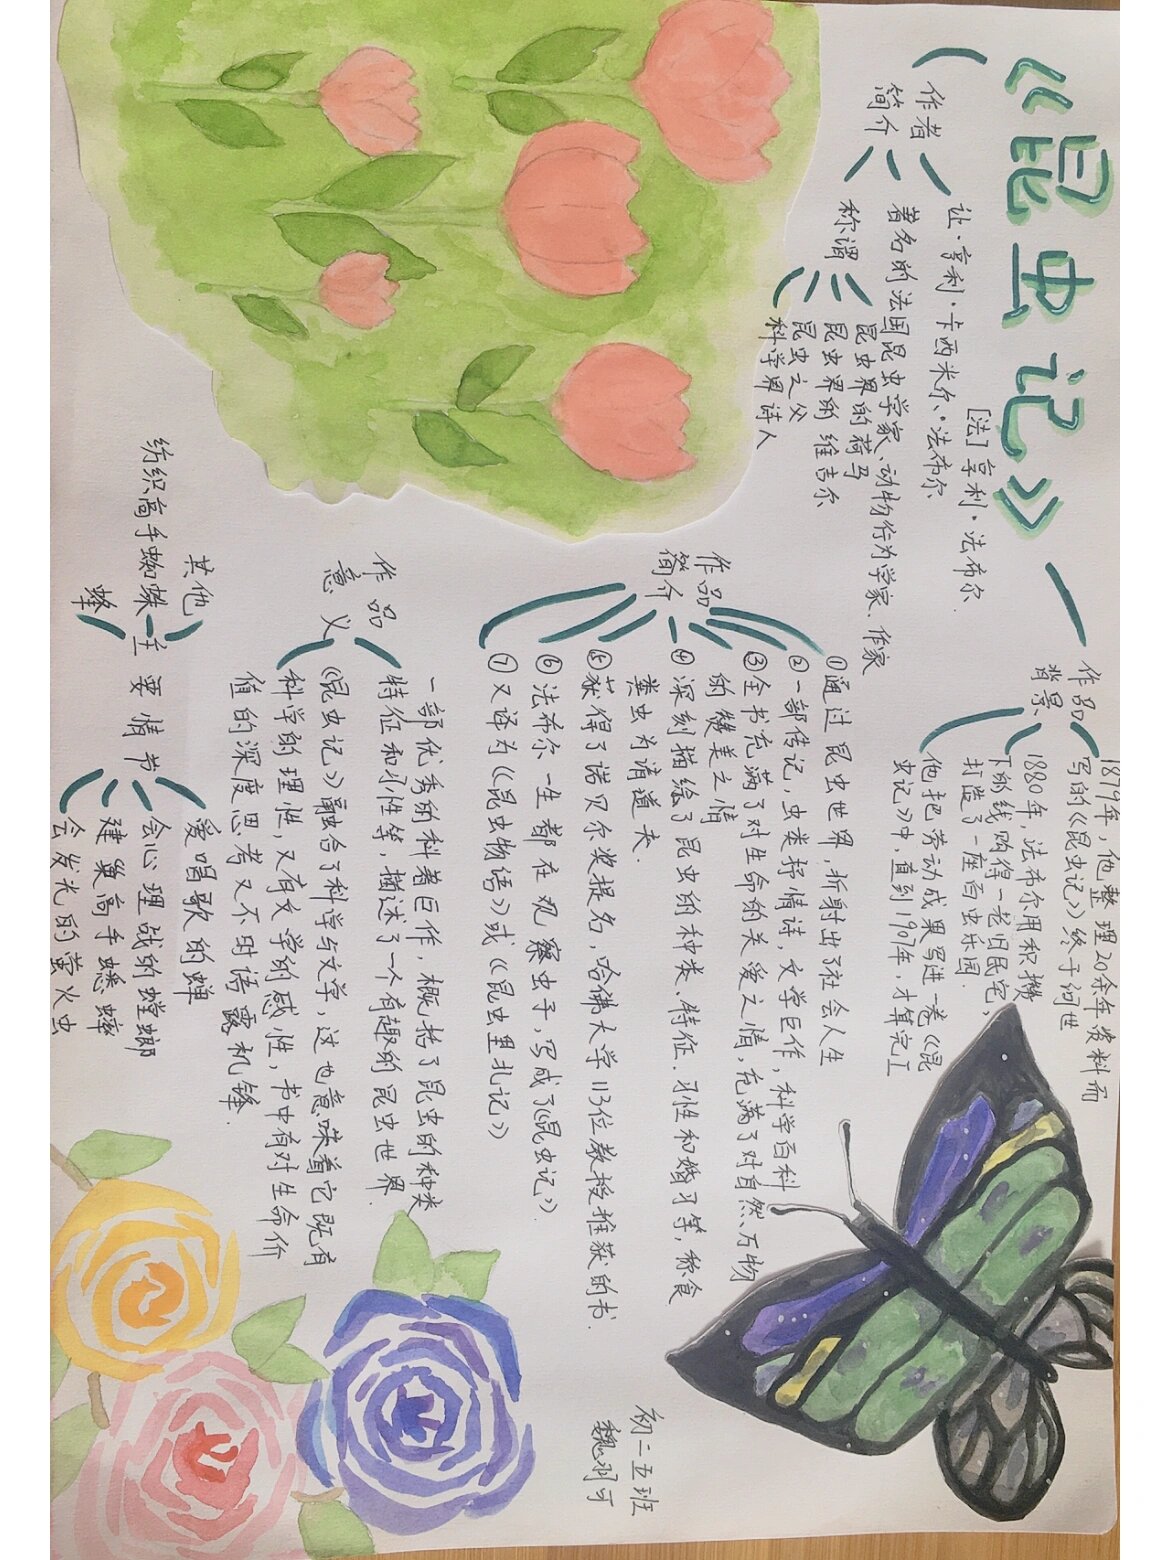 《昆虫记》
[法]亨利·法布尔.
作者
简介
让·亨利·卡西米尔·法布尔
著名的法国昆虫学家、动物行为学家、作家
称谓
昆虫界的荷马
昆虫界的维吉尔
昆虫之父
科学界诗人
作品
背景
1879年,他整理20余年资料而
写的《昆虫记》终于问世
1880年,法布尔用积攒
下的钱购得一老旧民宅,
打造了一座百虫乐园.
他把劳动成果写进一卷《昆
虫记》中,直到1907年,才算完工
作品
简介
①通过昆虫世界,折射出了社会人生
②一部传记,虫类抒情诗,文学巨作,科学百科
③全书充满了对生命的关爱之情,充满了对自然、万物
的赞美之情
④深刻描绘了昆虫的种类、特征、习性和婚习等,称食
粪虫为清道夫.
⑤获得了诺贝尔奖提名,哈佛大学113位教授推荐的书.
⑥法布尔一生都在观察虫子,写成了《昆虫记》.
⑦又译为《昆虫物语》或《昆虫里札记》
作品
意义
一部优秀的科普巨作,概括了昆虫的种类
特征和习性等,描述了一个有趣的昆虫世界.
《昆虫记》融合了科学与文学,这也意味着它既有
科学的理性,又有文学的感性,书中有对生命价
值的深度思考又不时语露机锋.
其他
纺织高手蜘蛛
蜂
主要情节
爱唱歌的蝉
会心理战的螳螂
建巢高手蟋蟀
会发光的萤火虫
初二五班